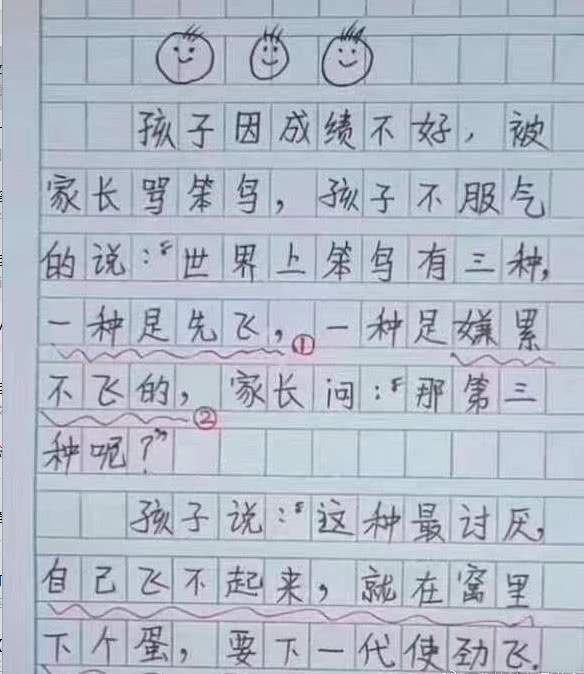 孩子因成绩不好，被
家长骂笨鸟，孩子不服气
的说：“世界上笨鸟有三种，
一种是先飞，①一种是嫌累
不飞的，②家长问：“那第三
种呢？”
孩子说：“这种最讨厌，
自己飞不起来，就在窝里
下个蛋，要下一代使劲飞.